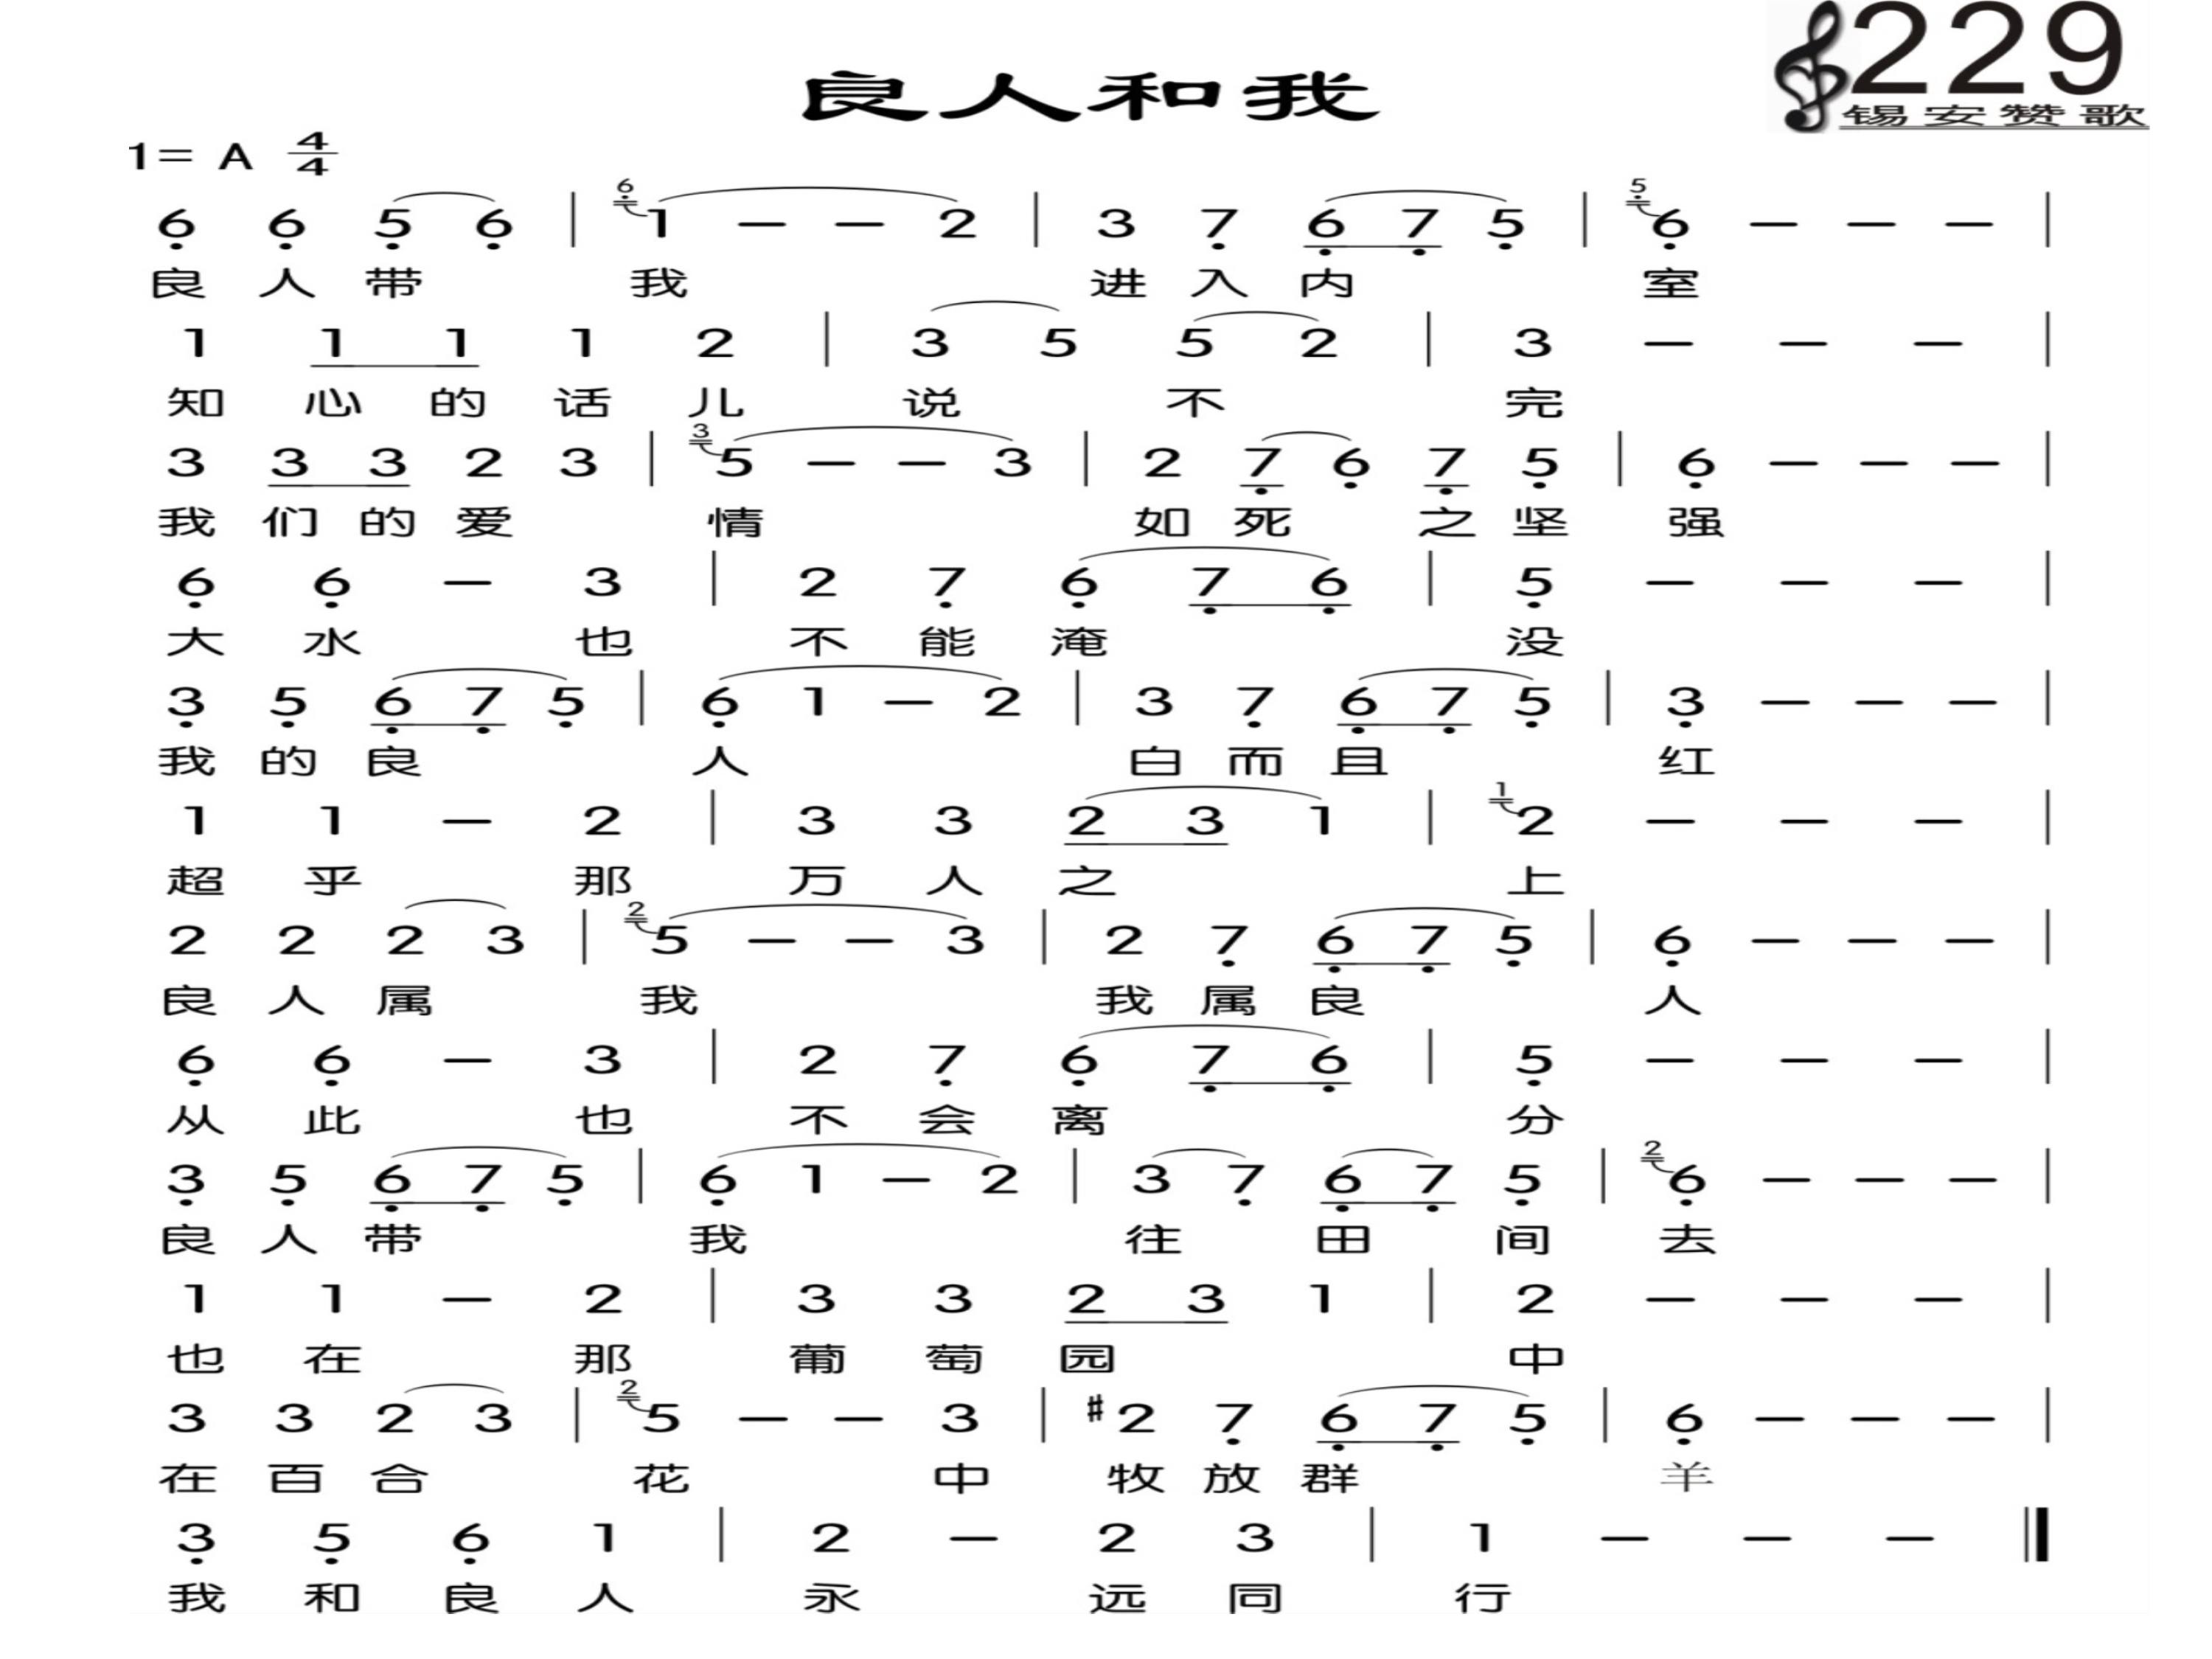 229
良人和我
锡安赞歌
1= A 4/4
6 6 5 6 | 6 1 — — 2 | 3 7 6 7 5 | 5 6 — — — |
良 人 带 我 进 入 内 室
1 1 1 1 2 | 3 5 5 2 | 3 — — — |
知 心 的 话 儿 说 不 完
3 3 3 2 3 | 3 5 — — 3 | 2 7 6 7 5 | 6 — — — |
我 们 的 爱 情 如 死 之 坚 强
6 6 — 3 | 2 7 6 7 6 | 5 — — — |
大 水 也 不 能 淹 没
3 5 6 7 5 | 6 1 — 2 | 3 7 6 7 5 | 3 — — — |
我 的 良 人 白 而 且 红
1 1 — 2 | 3 3 2 3 1 | 1 2 — — — |
超 乎 那 万 人 之 上
2 2 2 3 | 2 5 — — 3 | 2 7 6 7 5 | 6 — — — |
良 人 属 我 我 属 良 人
6 6 — 3 | 2 7 6 7 6 | 5 — — — |
从 此 也 不 会 离 分
3 5 6 7 5 | 6 1 — 2 | 3 7 6 7 5 | 2 6 — — — |
良 人 带 我 往 田 间 去
1 1 — 2 | 3 3 2 3 1 | 2 — — — |
也 在 那 葡 萄 园 中
3 3 2 3 | 2 5 — — 3 | #2 7 6 7 5 | 6 — — — |
在 百 合 花 中 牧 放 群 羊
3 5 6 1 | 2 — 2 3 | 1 — — — ‖
我 和 良 人 永 远 同 行